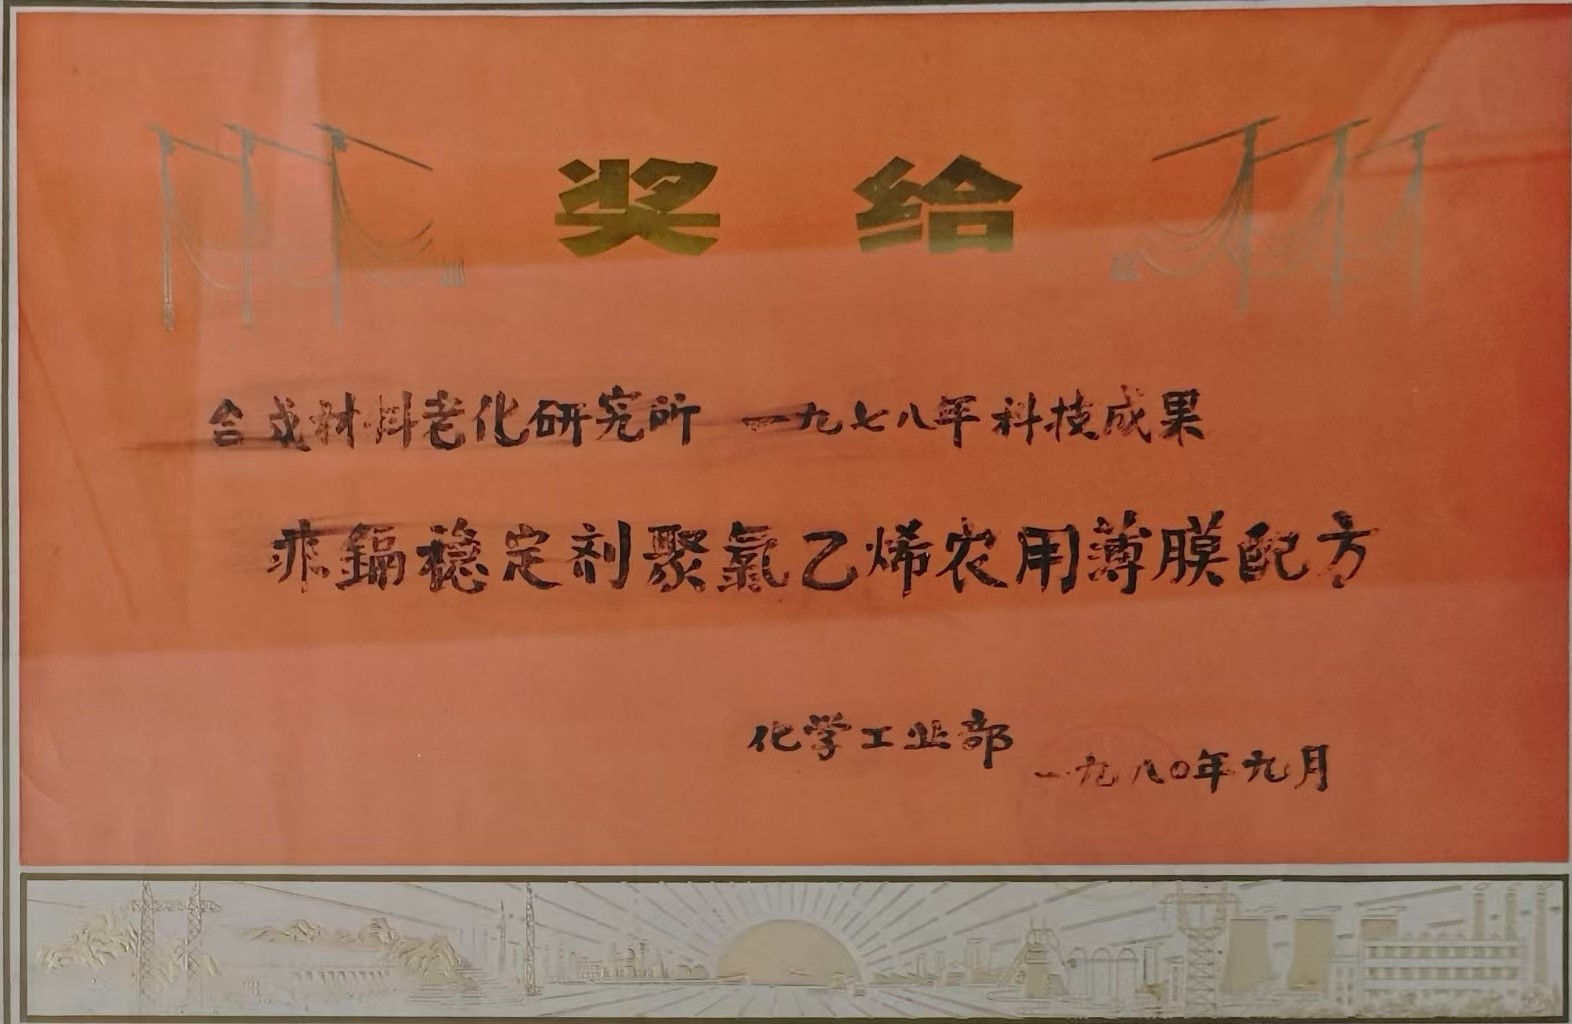 奖给
合成材料老化研究所 一九七八年科技成果
非镉稳定剂聚氯乙烯农用薄膜配方
化学工业部
一九八〇年九月